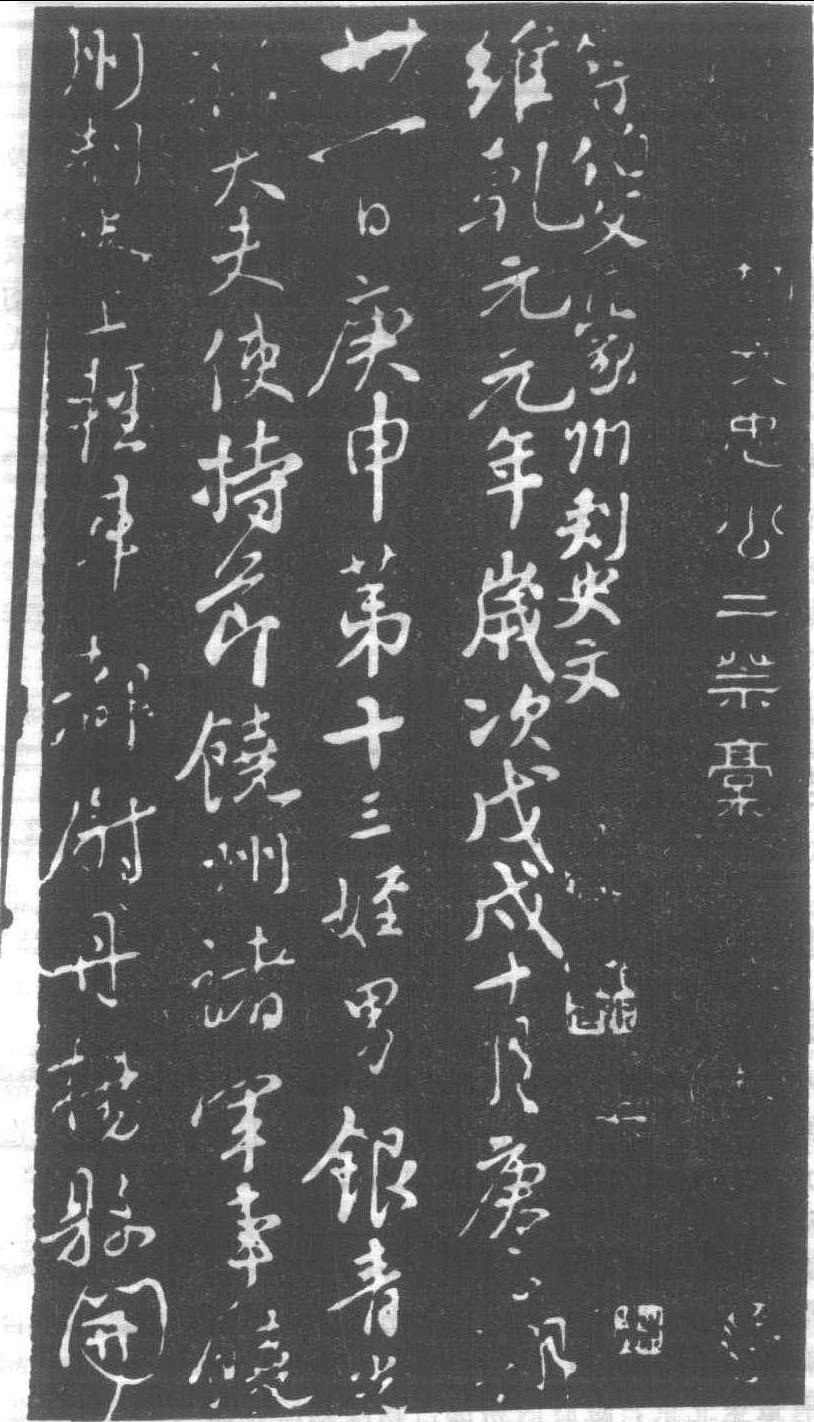 忠公二祭稾
祭伯父濠州刺史文
維乾元元年歲次戊戌十月庚午朔
廿一日庚申第十三姪男銀青光
祿大夫使持節饒州諸軍事饒
州刺史上輕車都尉丹楊縣開